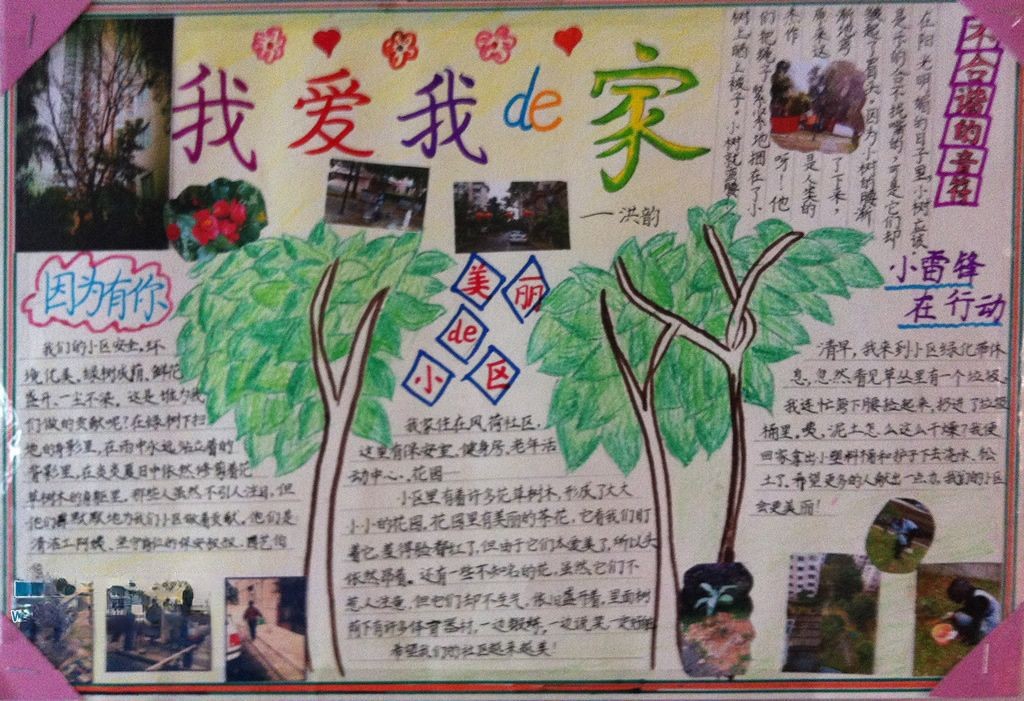 我爱我de家
——洪韵
不合谐的音符
在阳光明媚的日子里,小树应该
是乐的合不拢嘴的,可是它们却
皱起了眉头。因为小树的腰渐
渐地弯了下来,
原来这是人类的
杰作
听!他
们把绳子紧紧地捆在了小
树上晒上被子。小树就弯腰
因为有你
我们的小区安全、环
境优美、绿树成荫、鲜花
盛开、一尘不染。这是谁为我
们做的贡献呢?在绿树下扫
地的身影里,在雨中永远站立着的
背影里,在炎炎夏日中依然修剪着花
草树木的身躯里,那些人虽然不引人注目,但
他们默默地为我们小区做着贡献,他们是
清洁工阿姨、坚守岗位的保安叔叔、园艺伯
伯
美丽de小区
我家住在风荷社区,
这里有保安室、健身房、老年活
动中心、花园……
小区里有着许多花草树木,形成了大大
小小的花园,花园里有美丽的茶花,它看我们盯
着它,羞得脸都红了,但由于它们太爱美了,所以头
依然昂着。还有一些不知名的花,虽然它们不
惹人注意,但它们却不生气,依旧盛开着,里面树
荫下有许多体育器材,一边锻炼,一边说笑一定好
希望我们的社区越来越美!
小雷锋
在行动
清早,我来到小区绿化带休
息,忽然看见草丛里有一个垃圾,
我连忙弯下腰捡起来,扔进了垃圾
桶里。噢,泥土怎么这么干燥?我便
回家拿出小塑料桶和铲子下去浇水、松
土了,希望更多的人献出一点力,我们的小区
会更美丽!